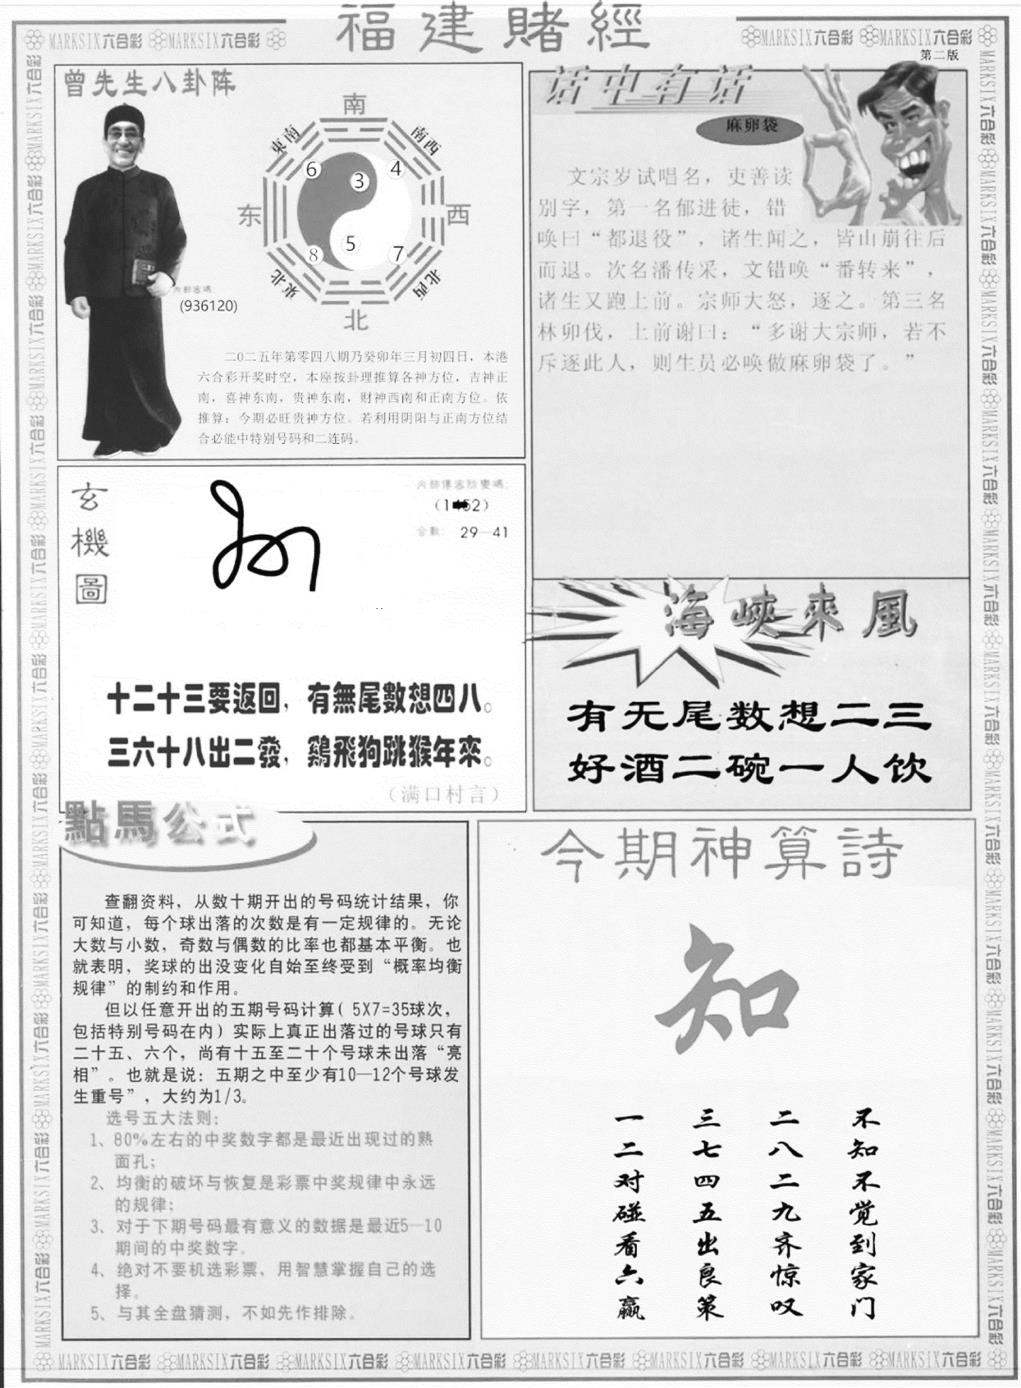 福建賭經
MARKSIX六合彩 MARKSIX六合彩
MARKSIX六合彩 MARKSIX六合彩
第二版
曾先生八卦阵
南
東南
南西
6
3
4
东
西
8
5
7
東北
北西
北
内部密碼:
(936120)
二0二五年第零四八期乃癸卯年三月初四日，本港
六合彩开奖时空，本座按卦理推算各神方位，吉神正
南，喜神东南，贵神东南，财神西南和正南方位。依
推算：今期必旺贵神方位。若利用阴阳与正南方位结
合必能中特别号码和二连码。
话中有话
麻卵袋
文宗岁试唱名，吏善读
别字，第一名郁进徒，错
唤曰“都退役”，诸生闻之，皆山崩往后
而退。次名潘传采，文错唤“番转来”，
诸生又跑上前。宗师大怒，逐之。第三名
林卯伐，上前谢曰：“多谢大宗师，若不
斥逐此人，则生员必唤做麻卵袋了。”
玄機圖
合數: 29—41
十二十三要返回，有無尾數想四八。
三六十八出二發，鷄飛狗跳猴年來。
（满口村言）
海峽來風
有无尾数想二三
好酒二碗一人饮
點馬公式
查翻资料，从数十期开出的号码统计结果，你
可知道，每个球出落的次数是有一定规律的。无论
大数与小数，奇数与偶数的比率也都基本平衡。也
就表明，奖球的出没变化自始至终受到“概率均衡
规律”的制约和作用。
但以任意开出的五期号码计算( 5X7=35球次，
包括特别号码在内) 实际上真正出落过的号球只有
二十五、六个，尚有十五至二十个号球未出落“亮
相”。也就是说：五期之中至少有10—12个号球发
生重号”，大约为1/3。
选号五大法则:
1、80%左右的中奖数字都是最近出现过的熟
面孔;
2、均衡的破坏与恢复是彩票中奖规律中永远
的规律;
3、对于下期号码最有意义的数据是最近5—10
期间的中奖数字。
4、绝对不要机选彩票，用智慧掌握自己的选
择。
5、与其全盘猜测，不如先作排除。
今期神算詩
知
不知不觉到家门
二八二九齐惊叹
三七四五出良策
一二对碰看六赢
MARKSIX六合彩 MARKSIX六合彩 MARKSIX六合彩 MARKSIX六合彩 MARKSIX六合彩 MARKSIX六合彩 MARKSIX六合彩 MARKSIX六合彩